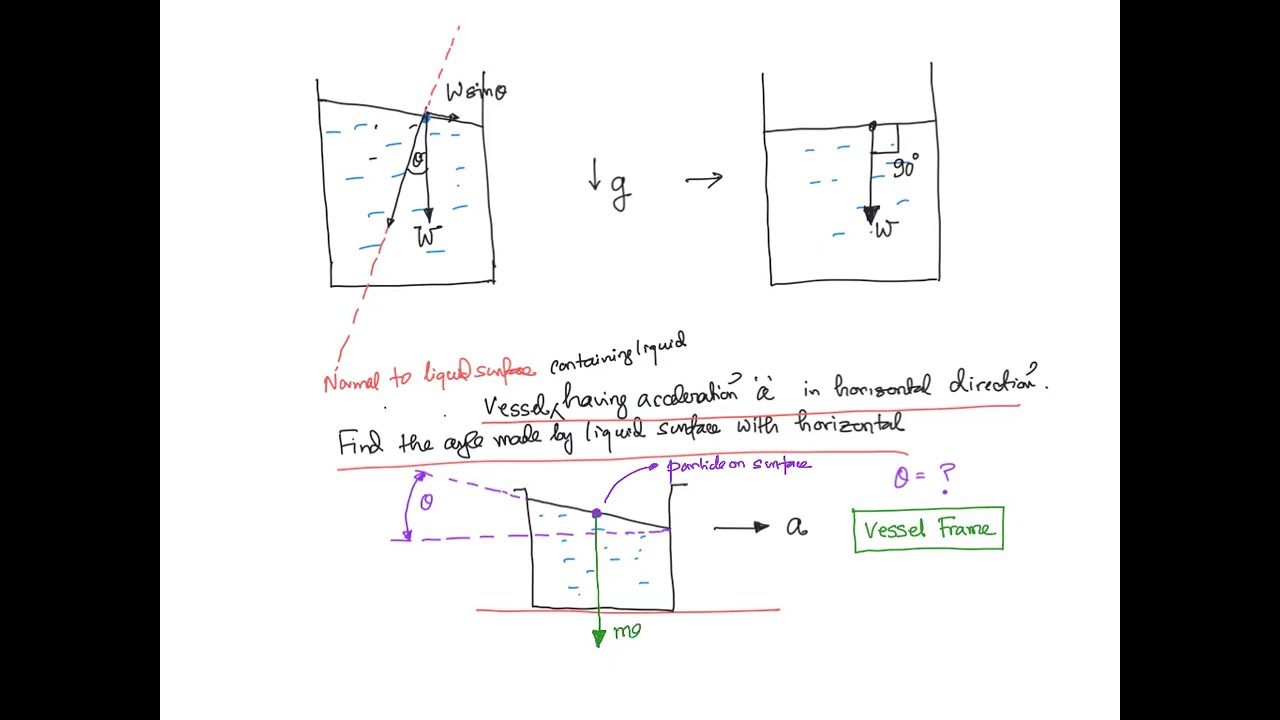 W sinθ
θ
W
↓ g →
90°
W
Normal to liquid surface
containing liquid
Vessel, having acceleration 'a' in horizontal direction.
Find the angle made by liquid surface with horizontal
particle on surface
θ = ?
θ
a
Vessel Frame
mg